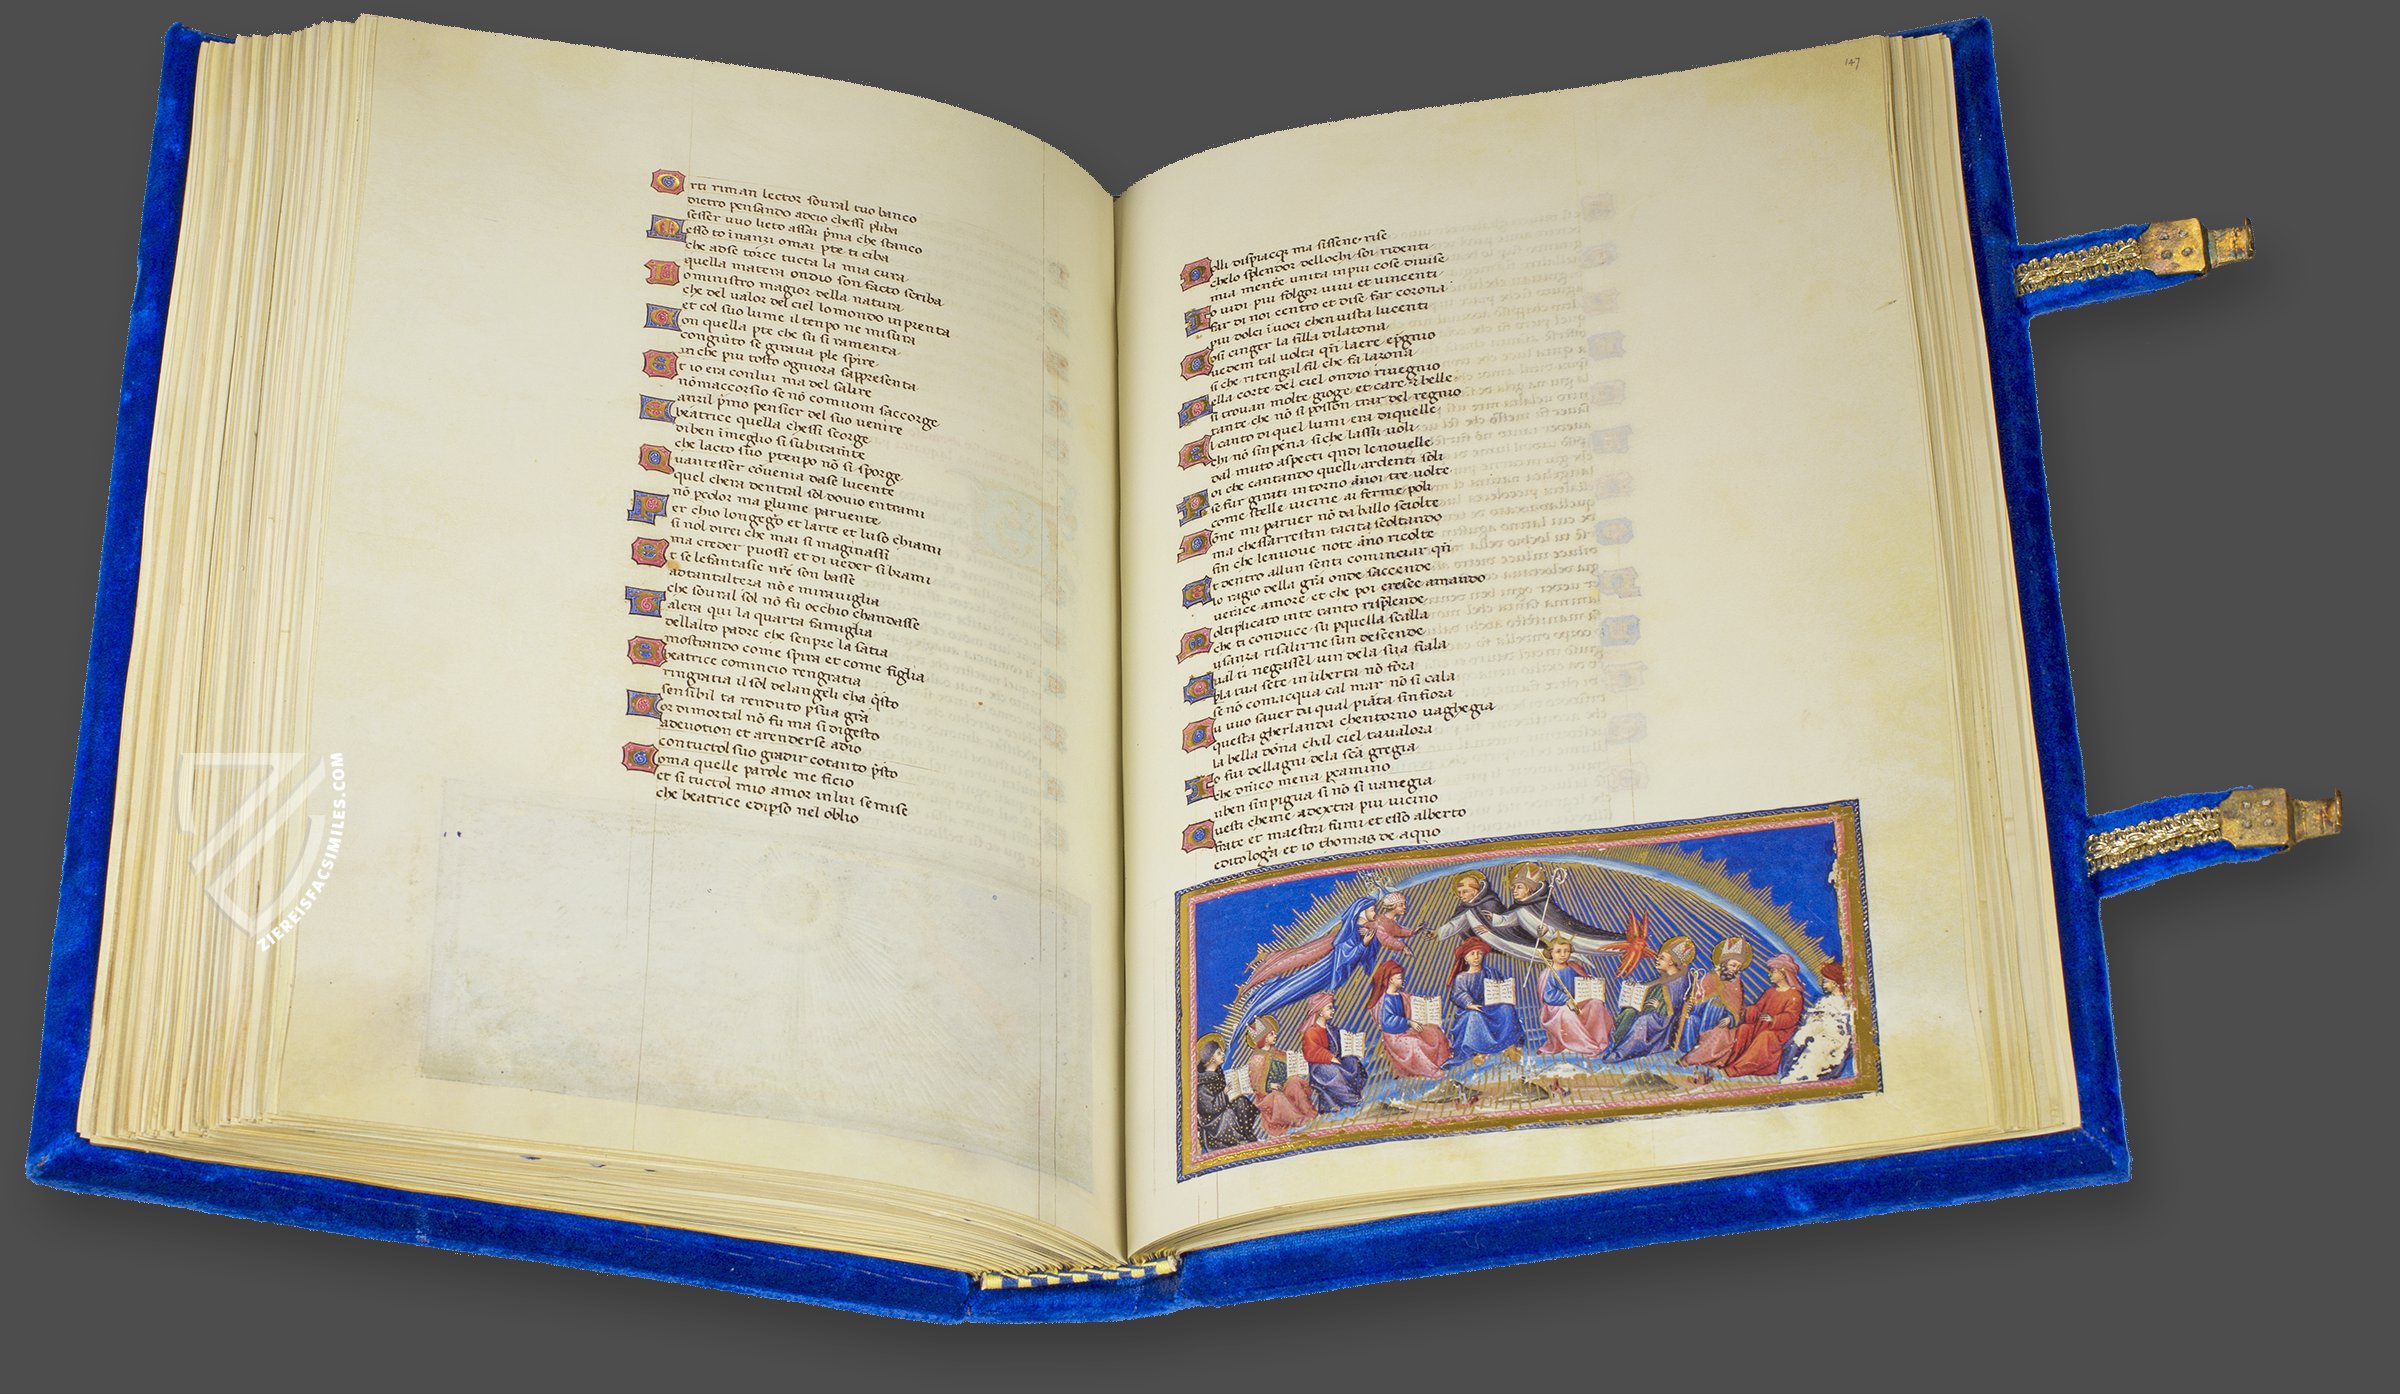 Orti riman lector soural tuo banco
dietro pensando adcio chessi pliba
sesser uuo lieto assai pma che stanco
Messo to inanzi omai pte ti ciba
che adse torce tucta la mia cura
quella matera ondio son facto scriba
Lo ministro magior della natura
che del ualor del ciel lo mondo inprenta
et col suo lume il tenpo ne misura
Con quella pte che su si ramenta
congiuto se giraua ple spire
in che piu tosto ogniora sappresenta
Et io era conlui ma del salire
nō maccorsio se nō comuom saccorge
anzil pmo pensier del suo uenire
E beatrice quella chessi scorge
diben imeglio si subitamte
che lacto suo ptenpo nō si sporge
Quantesser cōuenia dase lucente
quel chera dentral sol douio entrami
nō pcolor ma plume paruente
Per chio longegō et larte et luso chiami
si nol direi che mai si maginassi
ma creder puossi et di ueder si brami
Et se lefantasie nrē son basse
adtantalteza nō e mirauiglia
che soural sol nō fu occhio chandasse
Talera qui la quarta famiglia
dellalto padre che senpre la satia
mostrando come spira et come figlia
E beatrice comincio rengratia
ringratia il sol delangeli cha qsto
sensibil ta renduto psua gra
Cor di mortal nō fu ma si digesto
adeuotion et arenderse adio
contuctol suo gradir cotanto psto
Coma quelle parole me ficio
et si tuctol mio amor in lui se mise
che beatrice eclipso nel oblio
147
Nolli dispiacq ma sissene rise
chelo splendor dellochi soi ridenti
mia mente unita inpiu cose diuise
Io uidi piu folgor uiui et uincenti
far di noi centro et dise far corona
piu dolci iuoci chenuista lucenti
Cosi cinger la filla di latona
uedem tal uolta qn laere epgnio
si che ritengal fil che fa lazona
Nella corte del ciel ondio riuegnio
si trouan molte gioge et care et belle
tante che nō si posson trar del regnio
El canto di quel lumi era diquelle
chi nō sinpena si che lassu uoli
dal muto aspecti qndi le nouelle
Poi che cantando quelli ardenti soli
se fur girati intorno anoi tre uolte
come stelle uicine ai fermi poli
Done mi paruer nō da ballo sciolte
ma chessarrestin tacita scoltando
fin che lenuoue note ano ricolte
Et dentro allun senti cominciar qn
lo ragio della gra onde saccende
uerace amore et che poi cresce amando
Moltiplicato inte tanto risplende
che ti conduce su pquella scalla
usanza risalir ne sun descende
Qual ti negassel uin dela sua fiala
pla tua sete in liberta nō fora
se nō comacqua cal mar nō si cala
Tu uuo sauer da qual piata sinfiora
questa gherlanda chentorno uaghegia
la bella dona chal ciel taualora
Io fui dellagni dela sca gregia
che dnico mena pcamino
uben sinpigua si nō si uanegia
Questi cheme adextra piu uicino
frate et maestra fumi et esso alberto
edi cologa et io thomas de aqno
ZIEREISFACSIMILES.COM